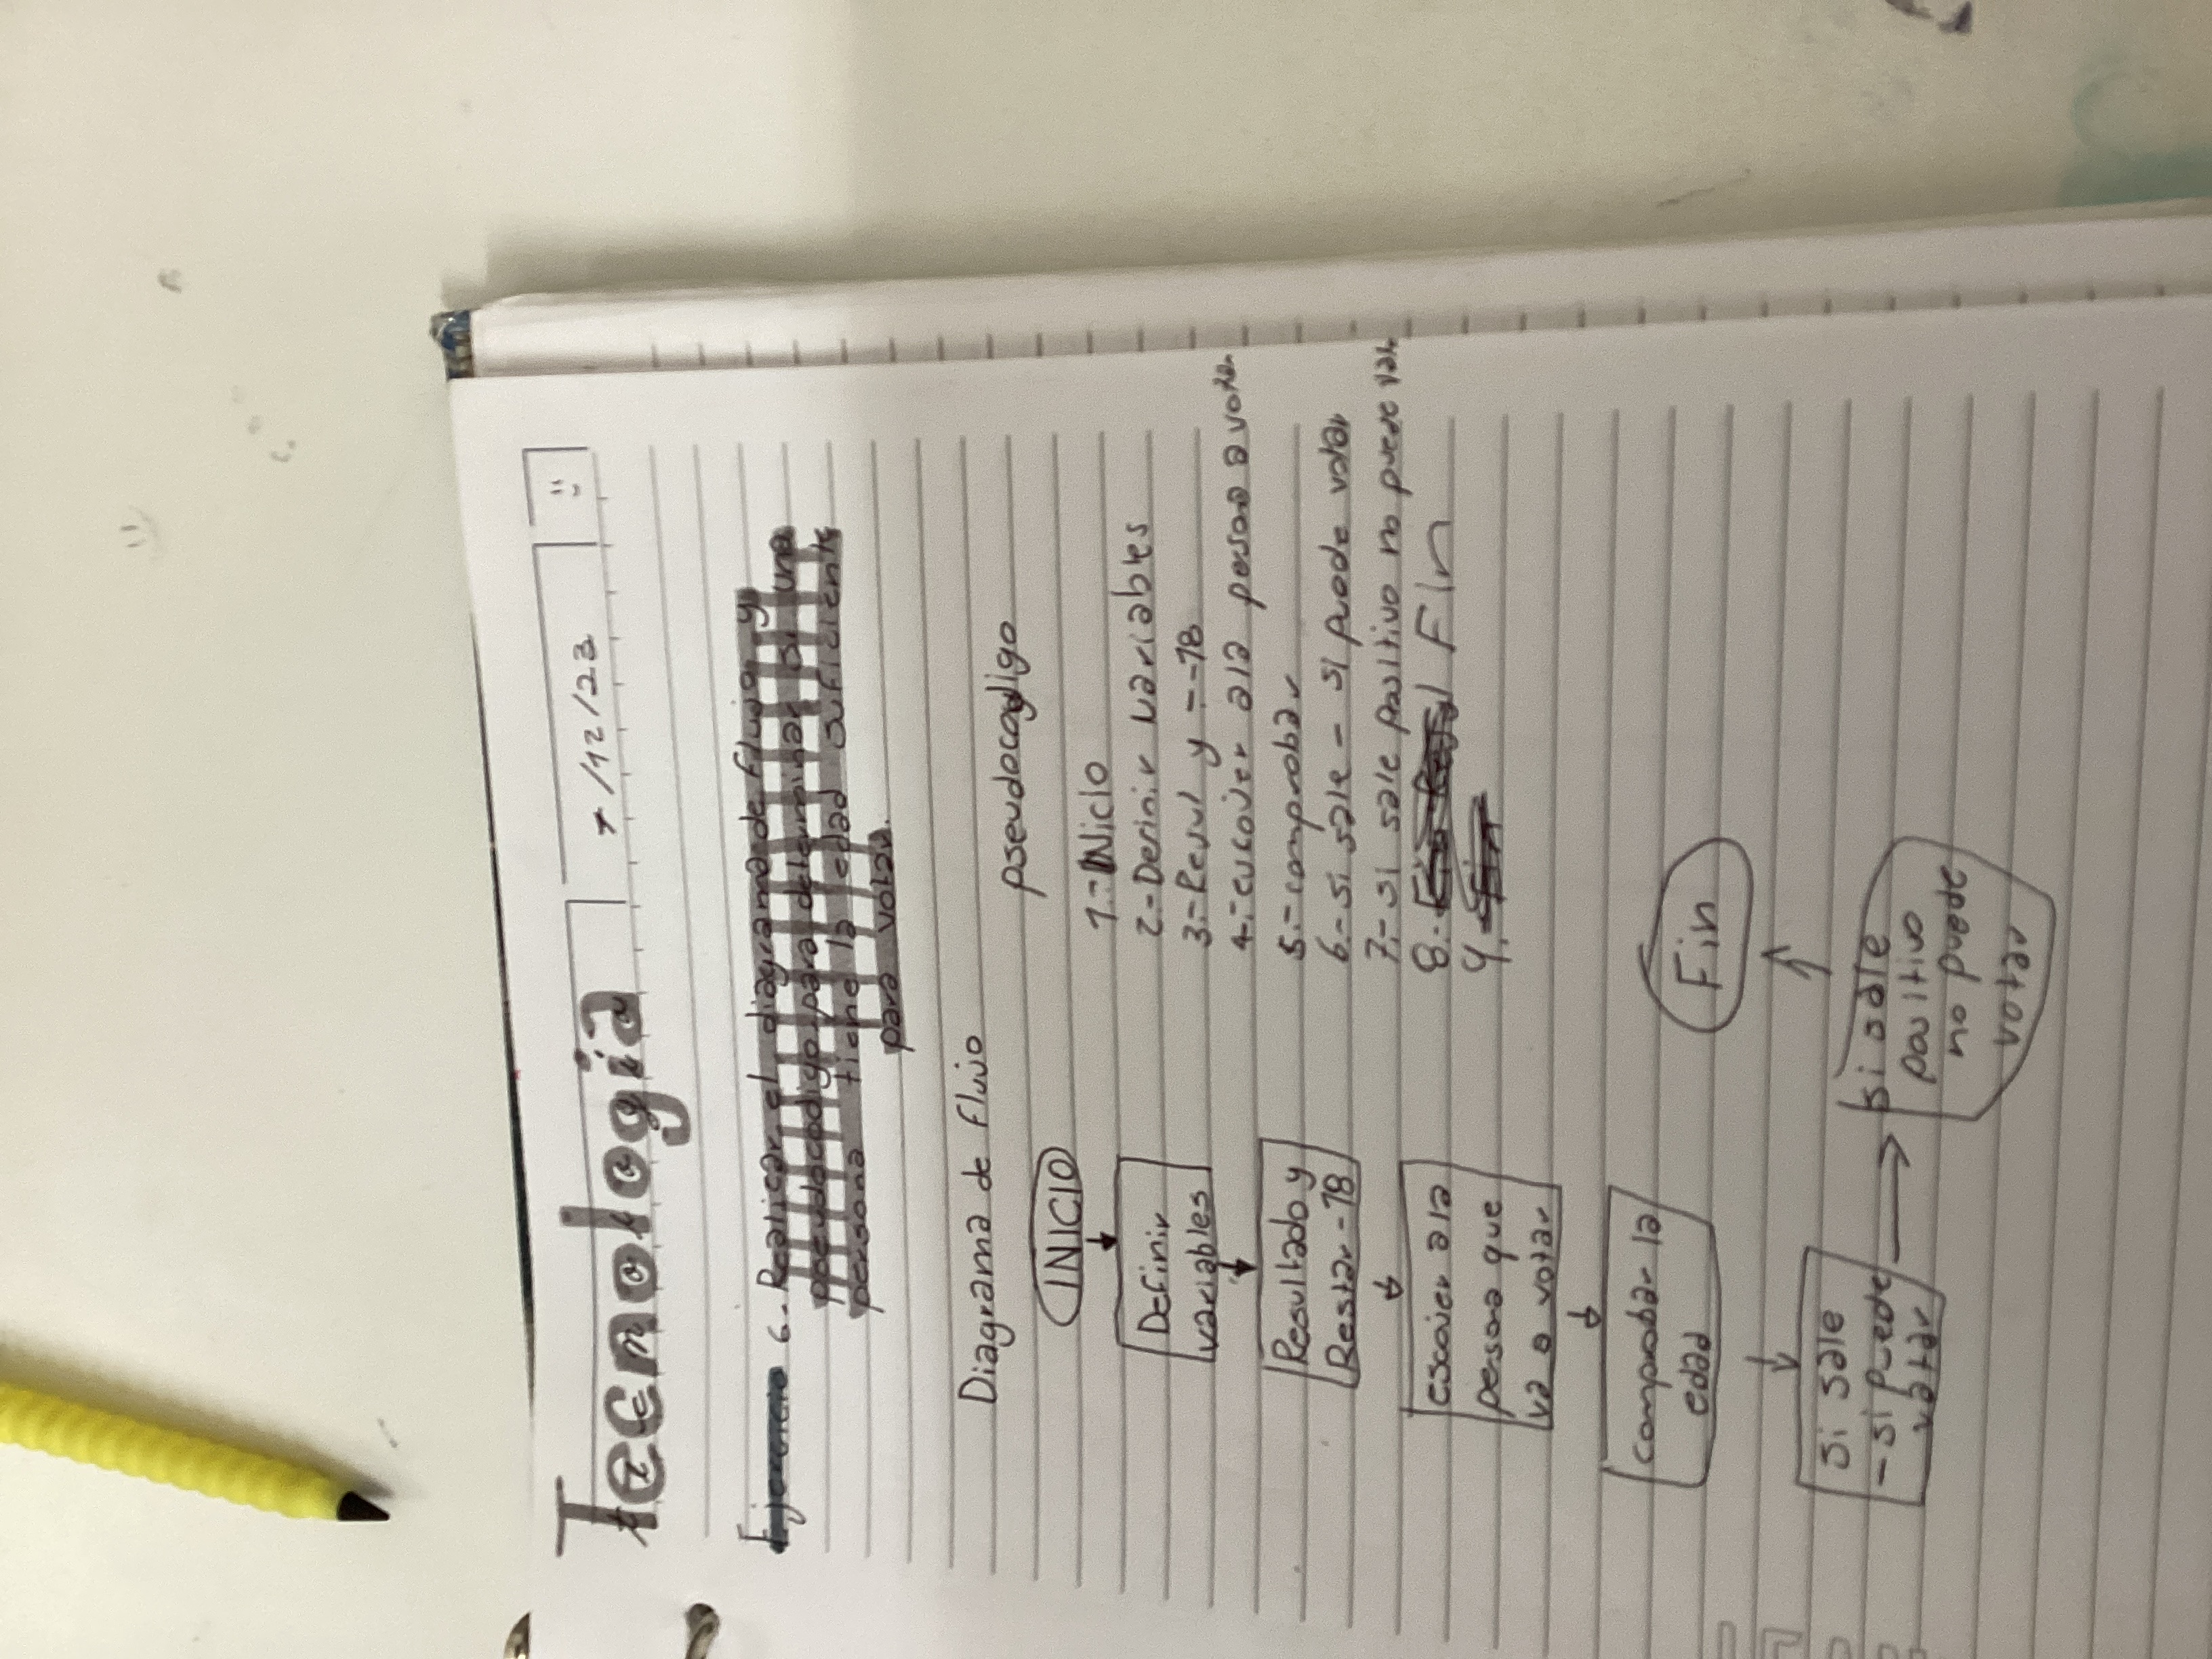 Tecnología
7/12/23
Ejercicio 6.- Realicar el diagrama de flujo y
pseudocodigo para determinar si una
persona tiene la edad suficiente
para votar.
Diagrama de flujo
INICIO
Definir
variables
Resultado y
Restar -18
escojer ala
persona que
va a votar
comprobar la
edad
Si sale
- si puede
votar
si sale
positivo
no puede
votar
Fin
pseudocodigo
1.- INicIo
2.- Definir variables
3.- Resul y = -18
4.- escojer ala persona a votar
5.- comprobar
6.- si sale - si puede votar
7.- si sale positivo no puede
8.- Fin
9.